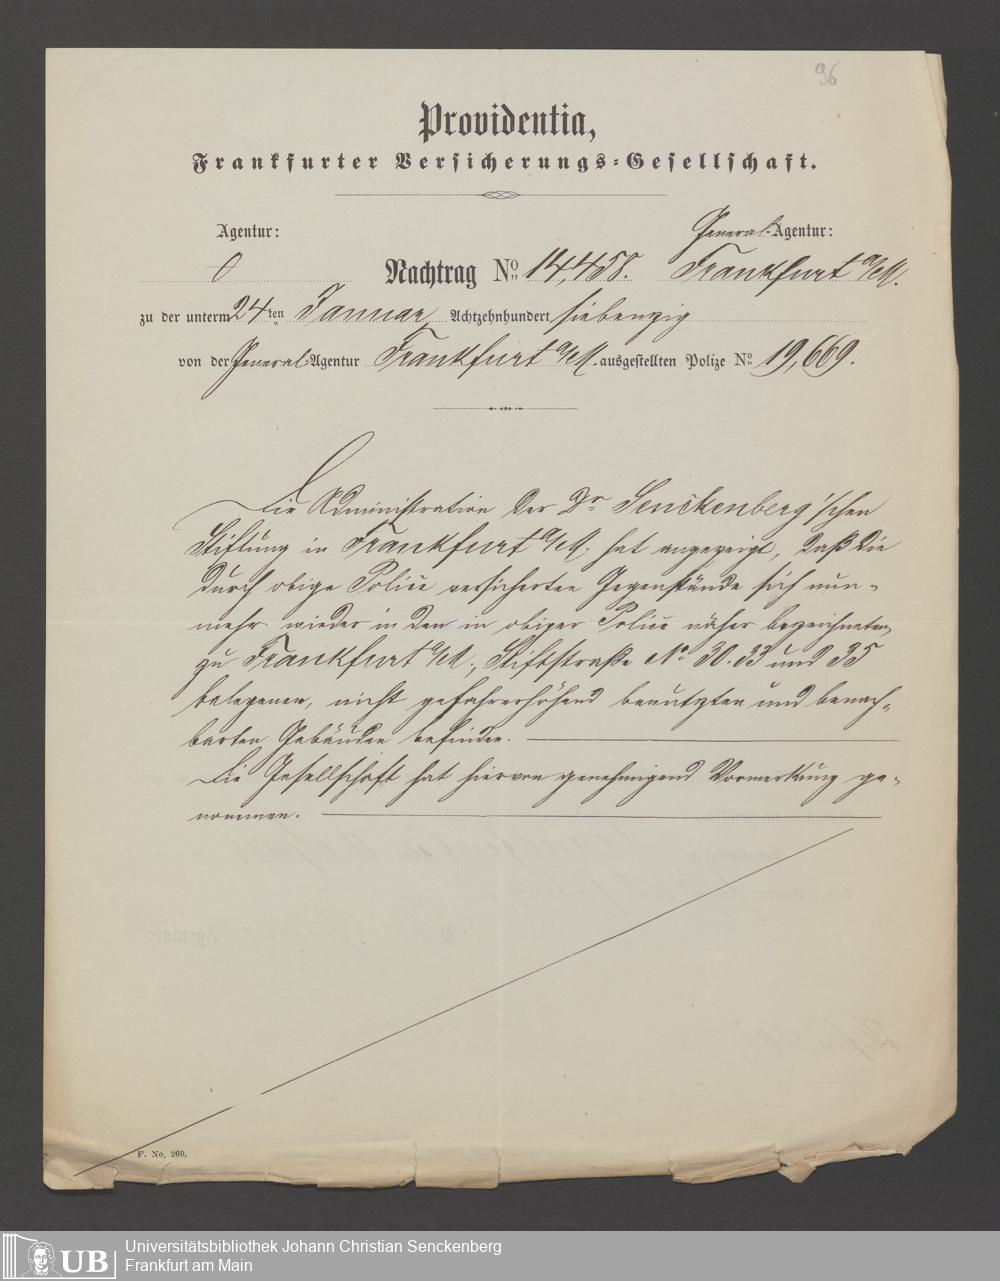 96
Providentia,
Frankfurter Versicherungs-Gesellschaft.
Agentur: General-Agentur:
0 Nachtrag No 14,458. Frankfurt a/M.
zu der unterm 24ten Januar Achtzehnhundert siebenzig
von der General-Agentur Frankfurt a/M. ausgestellten Polize No 19,669.
Die Administration der Dr Senckenberg'schen
Stiftung in Frankfurt a/M. hat angezeigt, daß die
durch obige Police versicherten Gegenstände sich nun-
mehr wieder in den in obiger Police näher bezeichneten,
zu Frankfurt a/M., Stiftstraße No 30. 33 und 35
belegenen, nicht gefahrerhöhend benutzten und benach-
barten Gebäuden befinden.
Die Gesellschaft hat hiervon genehmigend Vormerkung ge-
nommen.
F. No. 260.
UB
Universitätsbibliothek Johann Christian Senckenberg
Frankfurt am Main